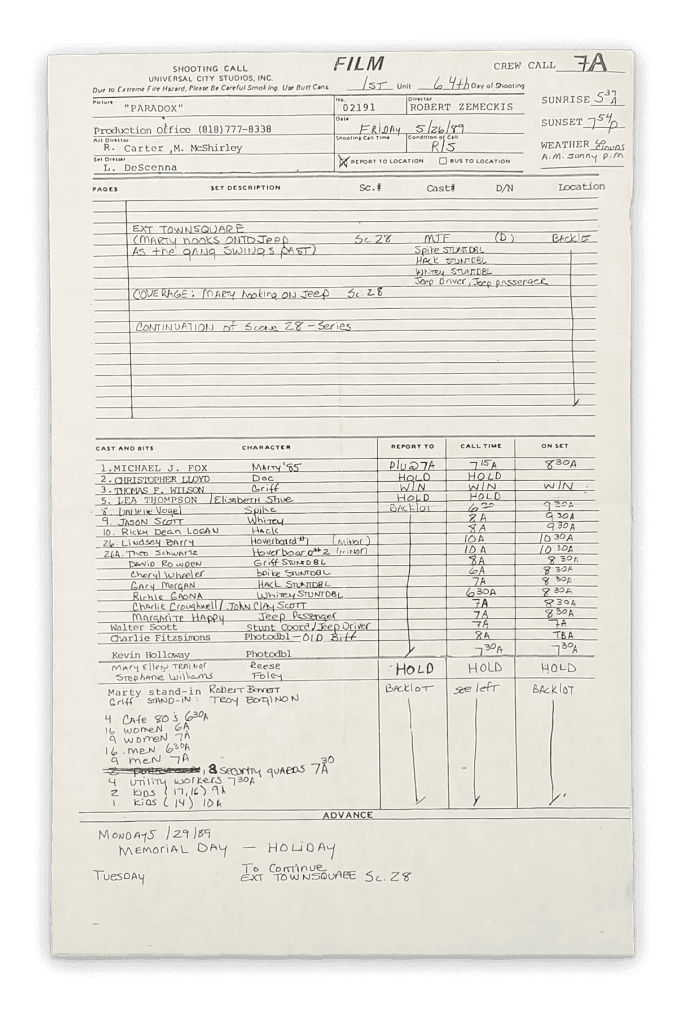 SHOOTING CALL
UNIVERSAL CITY STUDIOS, INC.
FILM
CREW CALL 7A
Due to Extreme Fire Hazard, Please Be Careful Smoking. Use Butt Cans.
1ST Unit 64th Day of Shooting
Picture "PARADOX"
No. 02191
Director ROBERT ZEMECKIS
SUNRISE 5 37 A
Production Office (818)777-8338
Date FRIDAY 5/26/89
SUNSET 7 54 P
Art Director R. Carter ,M. McShirley
Shooting Call Time
Condition of Call R/S
WEATHER
A.M. Sunny P.M
Set Dresser L. DeScenna
X REPORT TO LOCATION BUS TO LOCATION
PAGES SET DESCRIPTION Sc.# Cast# D/N Location
EXT TOWNSQUARE
(MARTY HOOKS ONTO JEEP Sc 28 MJF (D) BACKLOT
AS the GANG SWINGS PAST) Spike STUNTDBL
HACK STUNTDBL
WHITEY STUNTDBL
Jeep Driver, Jeep passenger
COVERAGE: MARTY hooking ON Jeep Sc 28
CONTINUATION of Scene 28 - Series
CAST AND BITS CHARACTER REPORT TO CALL TIME ON SET
1. MICHAEL J. FOX Marty '85 P/U@7A 7 15A 8 30A
2. CHRISTOPHER LLOYD Doc HOLD HOLD
3. THOMAS F. WILSON Griff W/N W/N W/N
5. LEA THOMPSON /Elisabeth Shue HOLD HOLD
8. Darlene Vogel Spike BACKLOT 6 30 9 30A
9. JASON SCOTT Whitey 8A 9 30A
10. Ricky Dean LOGAN HACK 8A 9 30A
26. Lindsey Barry Hoverboard #1 (MINOR) 10A 10 30A
26A. Theo Schwartz Hoverboard #2 (minor) 10A 10 30A
David Rowden Griff STUNTDBL 8A 8 30A
Cheryl Wheeler Spike STUNTDBL 6A 8 30A
GARY MORGAN HACK STUNTDBL 7A 8 30A
Richie GAONA WHITEY STUNTDBL 6 30A 8 30A
Charlie Croughwell / JOHN CLAY SCOTT 7A 8 30A
MARGARITE HAPPY Jeep Passenger 7A 8 30A
Walter Scott Stunt Coord/Jeep Driver 7A 7A
Charlie Fitzsimons Photodbl - OLD Biff 8A TBA
Kevin Holloway Photodbl 7 30A 7 30A
MARY Ellen TRAINOR Reese HOLD HOLD HOLD
Stephanie Williams Foley
Marty stand-in Robert Bennett BACKLOT see left BACKLOT
Griff STAND-IN: TROY BORGINON
4 Cafe 80's 6 30A
16 women 6A
9 women 7A
16 MEN 6 30A
9 MEN 7A
8 security guards 7 30 A
4 utility workers 7 30A
2 kids (17,16) 9A
1 kids (14) 10A
ADVANCE
MONDAY 5/29/89
MEMORIAL DAY — HOLIDAY
TUESDAY To Continue
EXT TOWNSQUARE Sc. 28